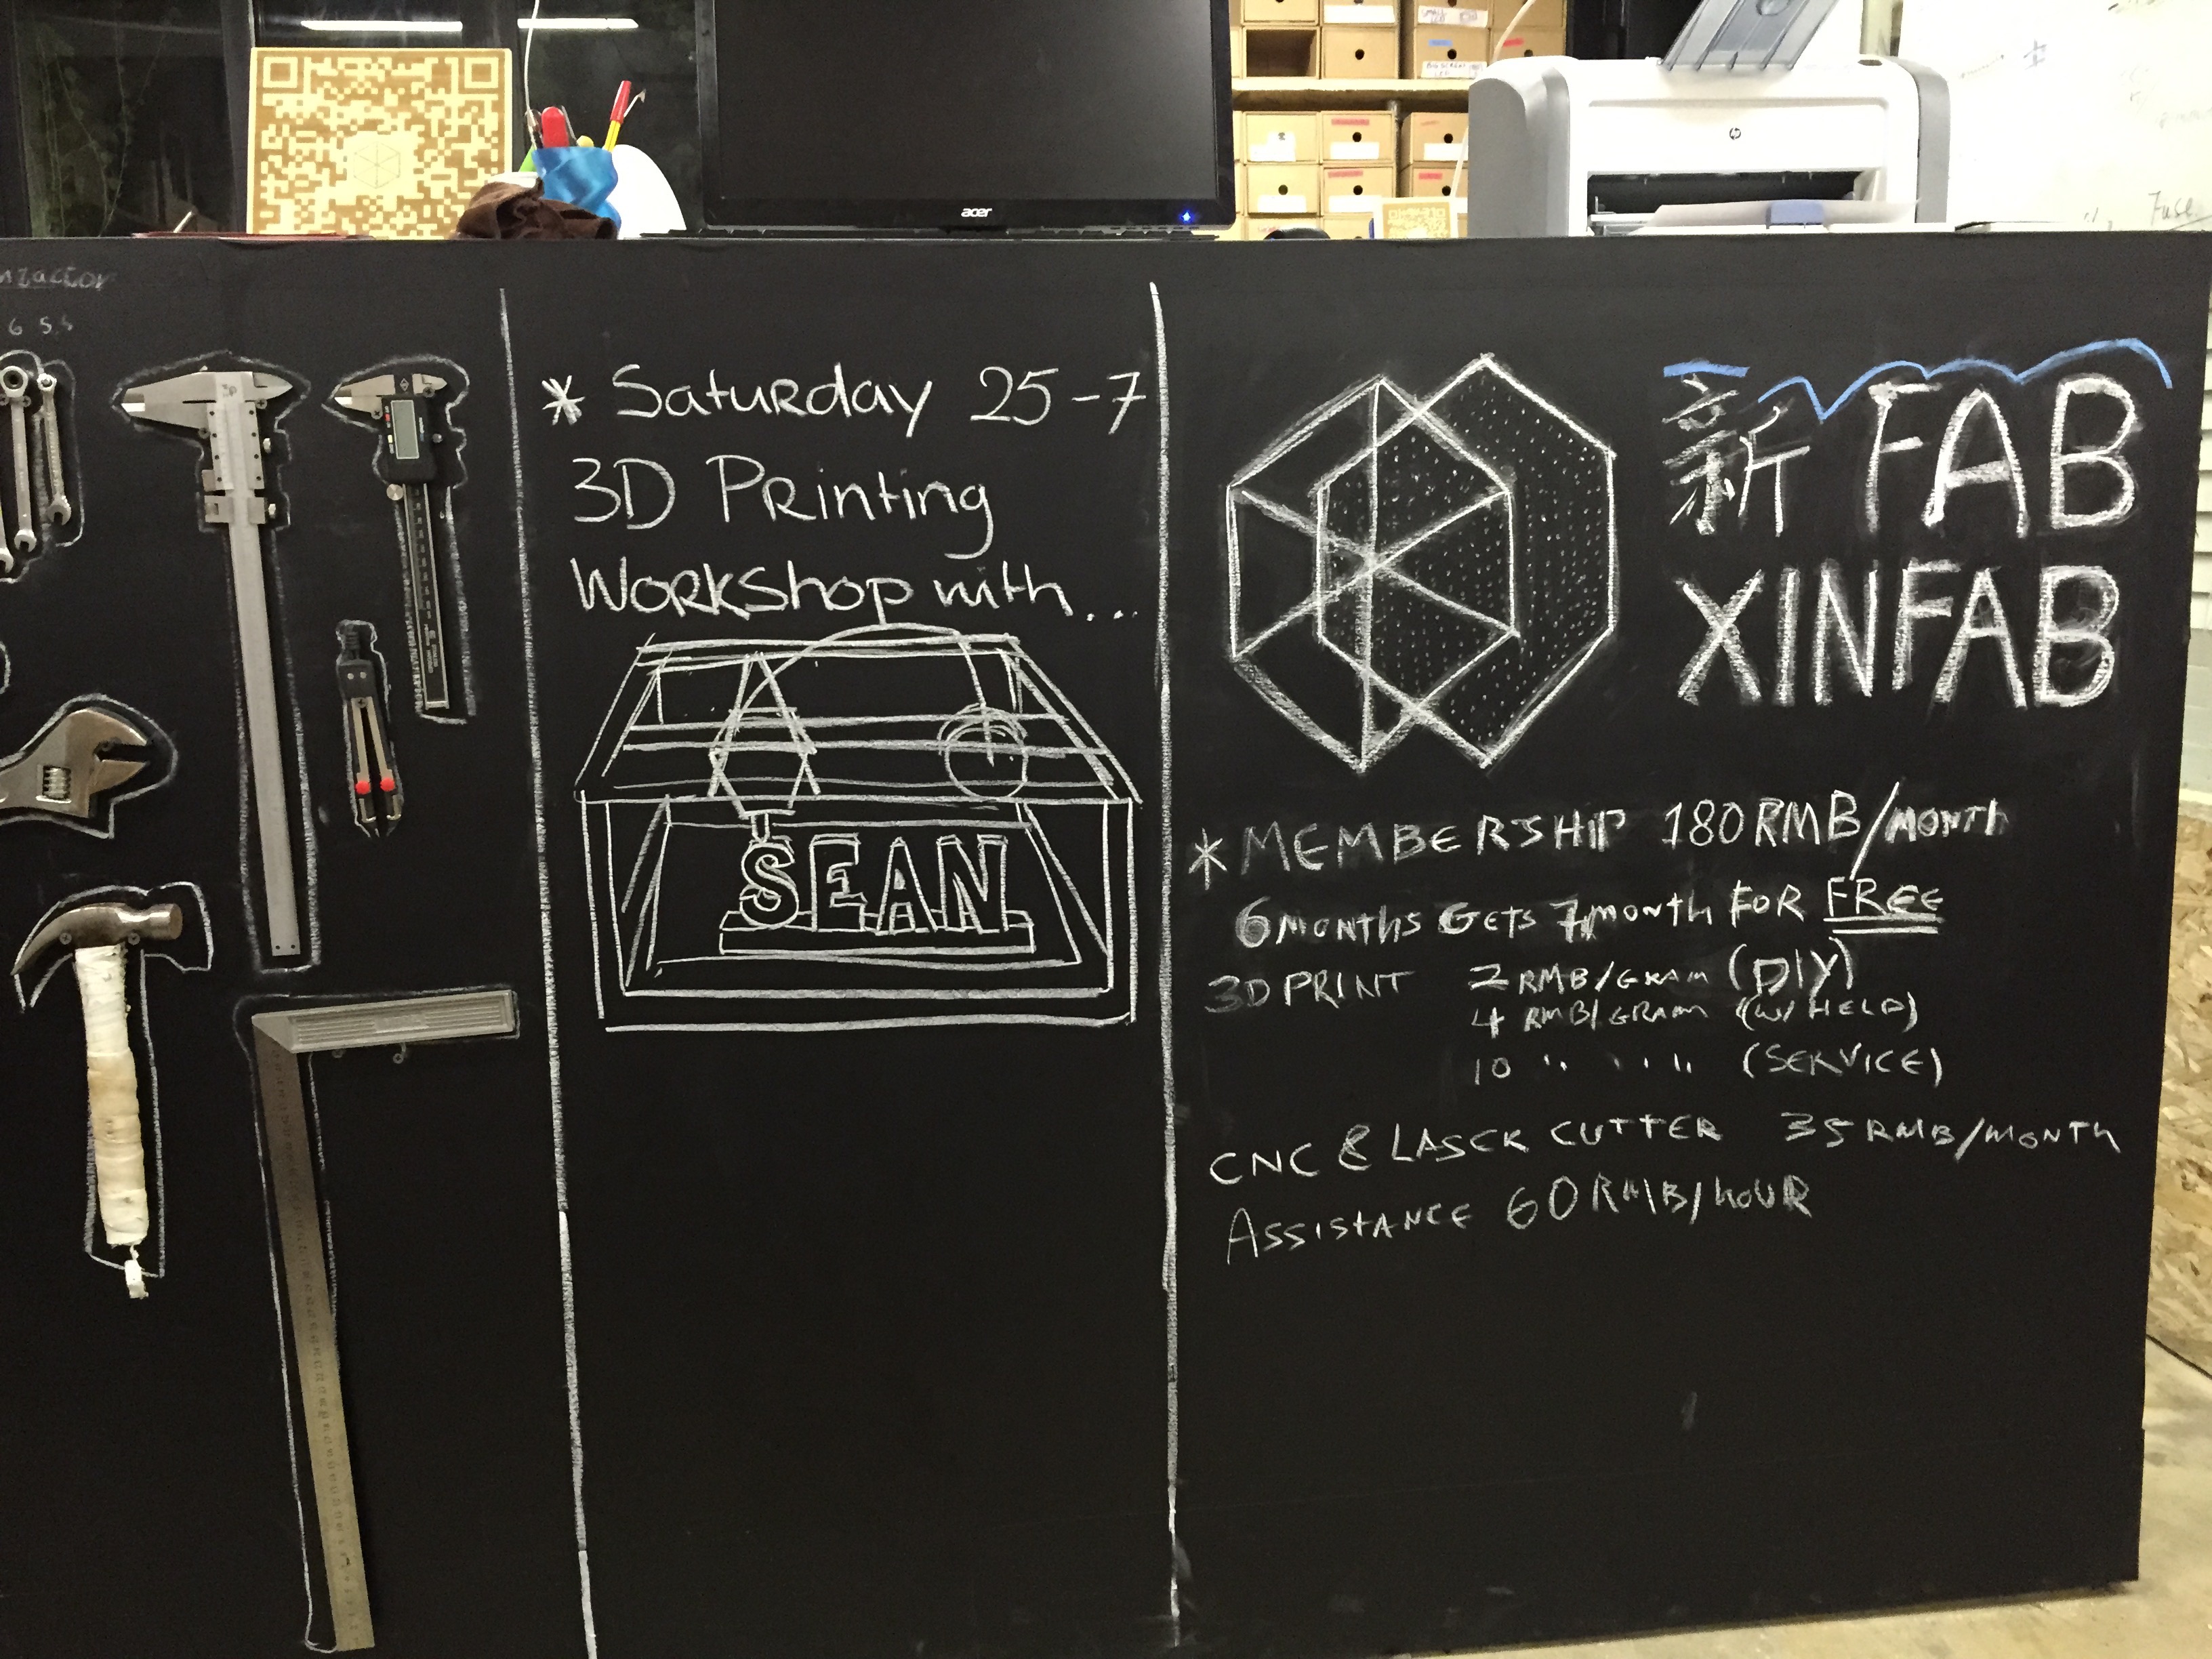 acer
hp
Fuse
6 5.5
* Saturday 25-7
3D Printing
Workshop with...
SEAN
新 FAB
XINFAB
* MEMBERSHIP 180 RMB/MONTH
6 MONTHS GETS 7 MONTH FOR FREE
3D PRINT 2 RMB/GRAM (DIY)
4 RMB/GRAM (W/ HELP)
10 " " " (SERVICE)
CNC & LASER CUTTER 35 RMB/MONTH
ASSISTANCE 60 RMB/HOUR